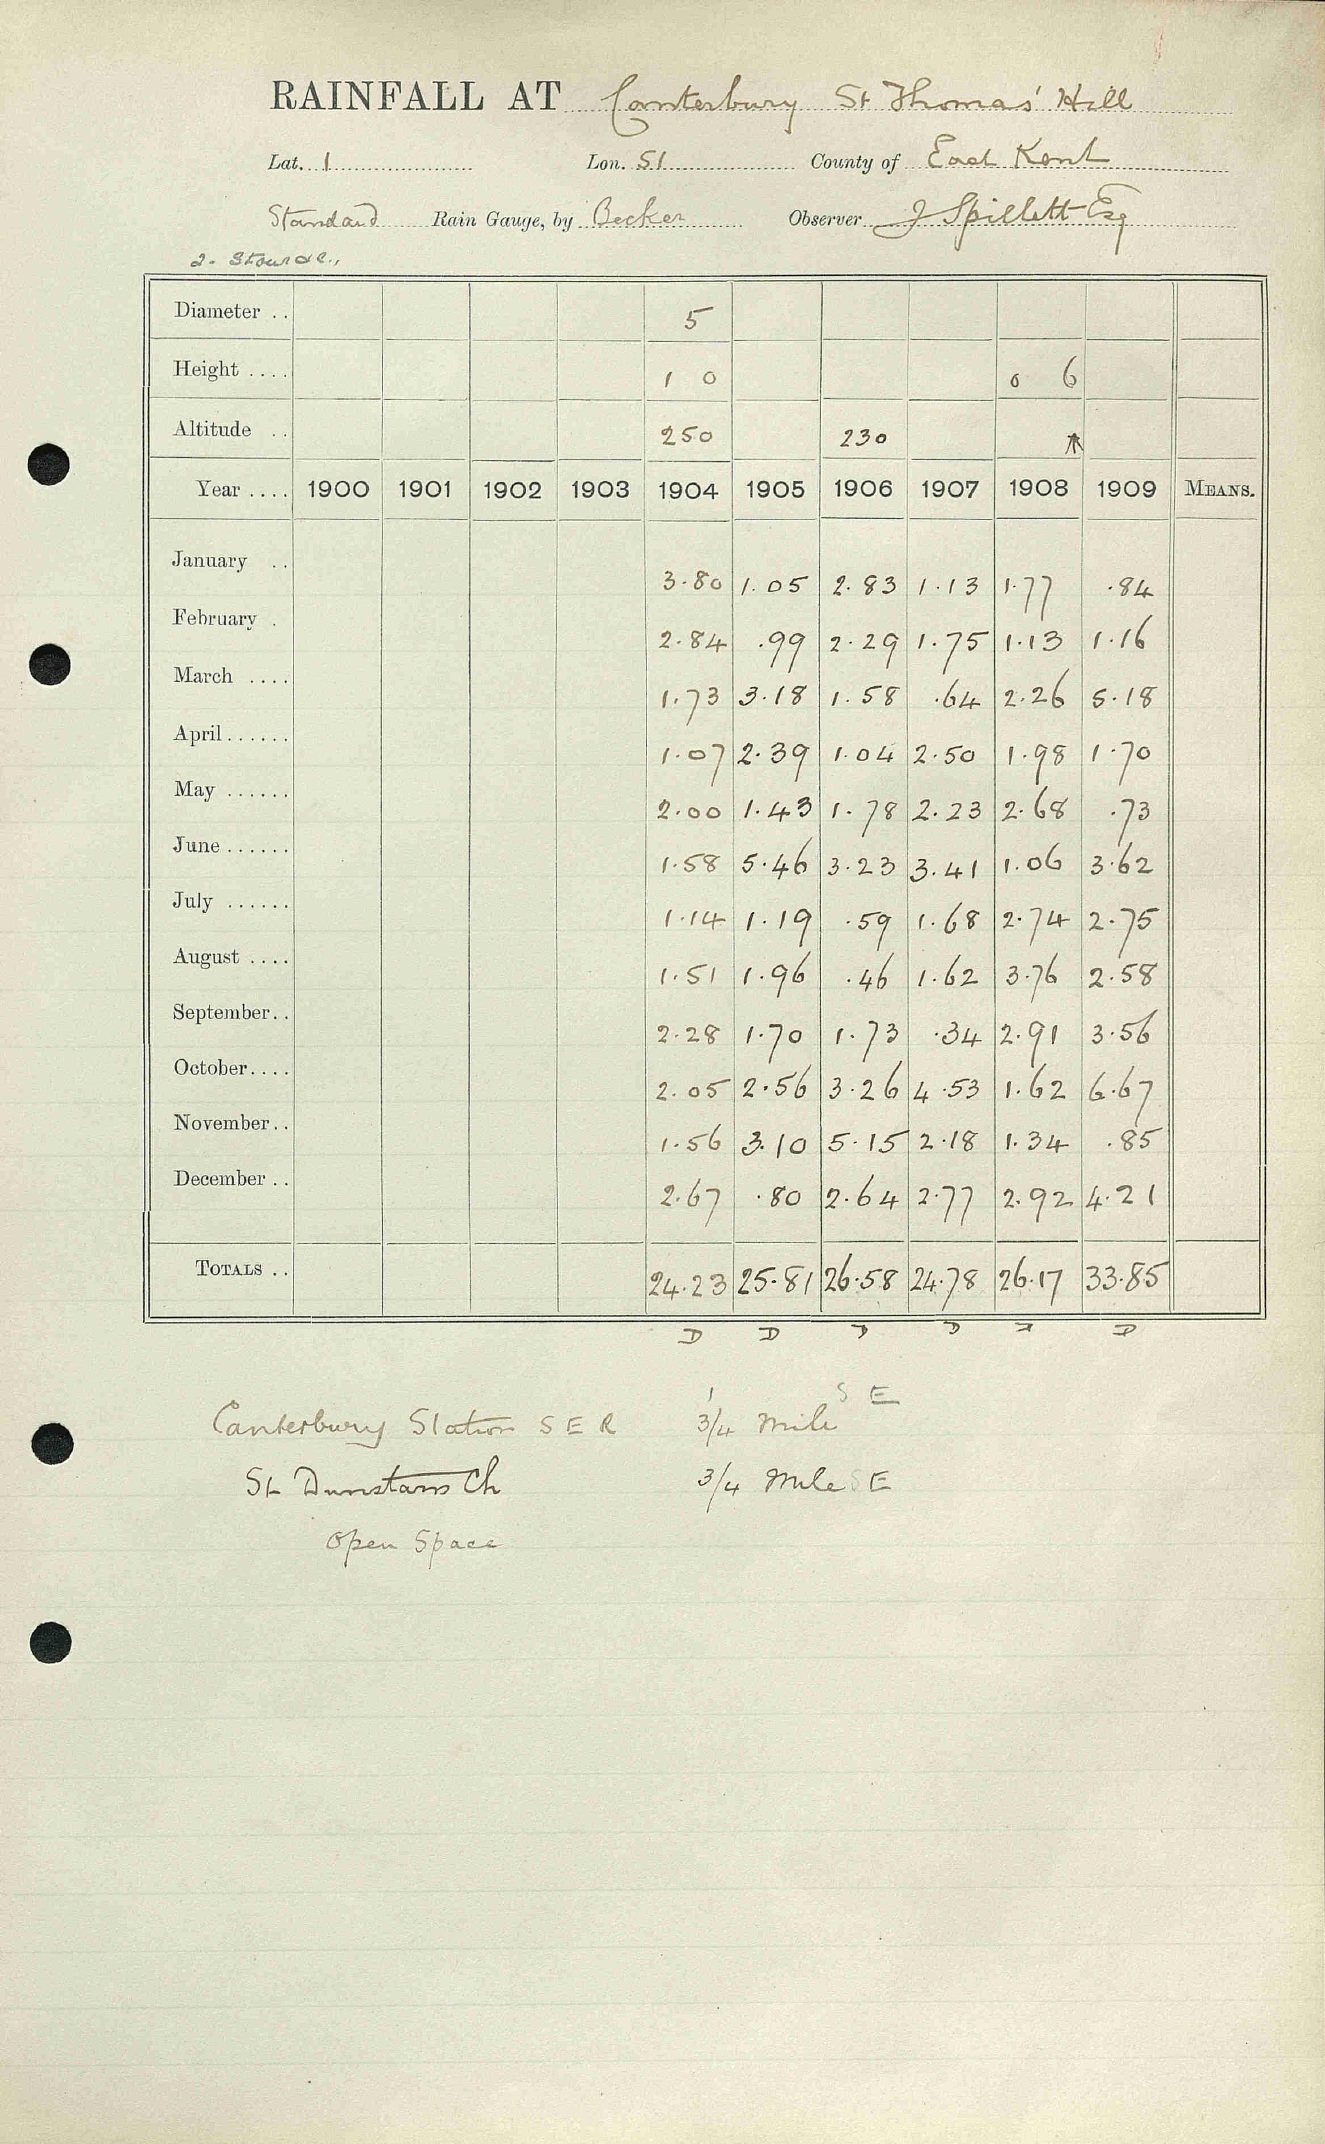 RAINFALL AT Canterbury St Thomas' Hill
Lat. 1 Lon. 51 County of East Kent
Standard Rain Gauge, by Becker Observer J Spillett Esq
2. Stour &c.,
Diameter .. 5
Height .... 1 0 0 6
Altitude .. 250 230
Year .... 1900 1901 1902 1903 1904 1905 1906 1907 1908 1909 MEANS.
January .. 3.80 1.05 2.83 1.13 1.77 .84
February . 2.84 .99 2.29 1.75 1.13 1.16
March .... 1.73 3.18 1.58 .64 2.26 5.18
April...... 1.07 2.39 1.04 2.50 1.98 1.70
May ...... 2.00 1.43 1.78 2.23 2.68 .73
June...... 1.58 5.46 3.23 3.41 1.06 3.62
July ...... 1.14 1.19 .59 1.68 2.74 2.75
August .... 1.51 1.96 .46 1.62 3.76 2.58
September.. 2.28 1.70 1.73 .34 2.91 3.56
October.... 2.05 2.56 3.26 4.53 1.62 6.67
November.. 1.56 3.10 5.15 2.18 1.34 .85
December .. 2.67 .80 2.64 2.77 2.92 4.21
TOTALS .. 24.23 25.81 26.58 24.78 26.17 33.85
D D D D D
Canterbury Station S E R 3/4 Mile S E
St Dunstans Ch 3/4 Mile S E
Open Space